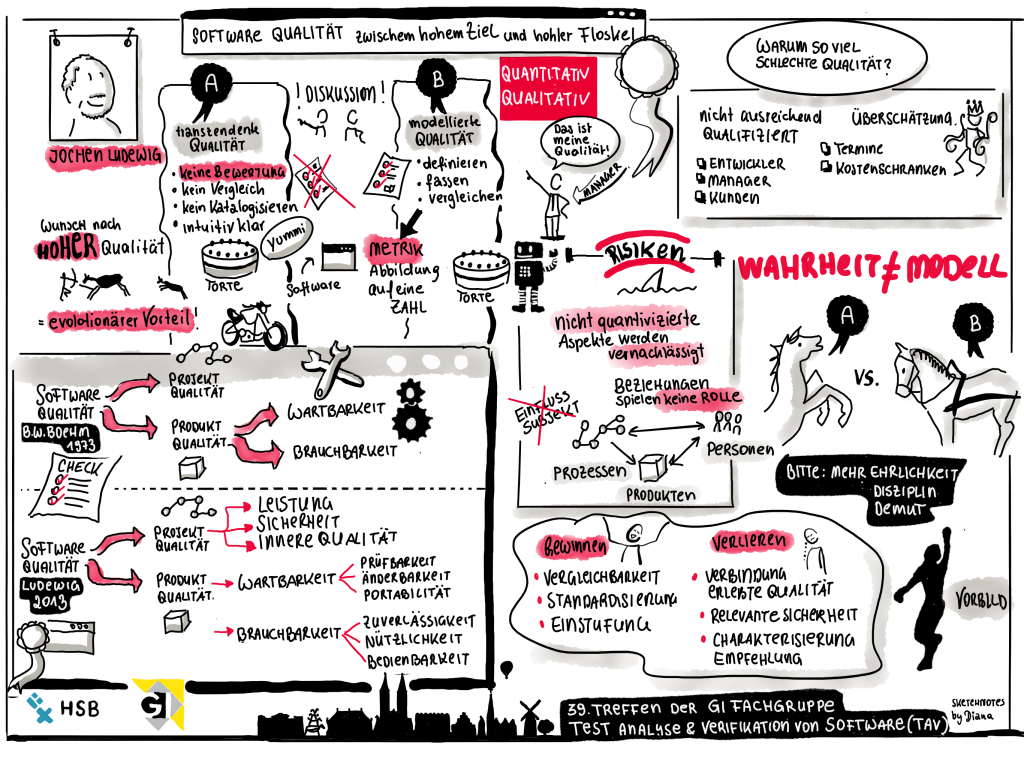 SOFTWARE QUALITÄT zwischem hohem Ziel und hohler Floskel
JOCHEN LUDEWIG
A
transzendente
QUALITÄT
keine Bewertung
• kein Vergleich
• kein Katalogisieren
• intuitiv klar
! DISKUSSION !
B
modellierte
QUALITÄT
• definieren
• fassen
• vergleichen
METRIK
Abbildung
auf eine
ZAHL
Yummi
TORTE
Software
TORTE
WUNSCH nach
HOHER Qualität
= evolutionärer Vorteil!
QUANTITATIV
QUALITATIV
Das ist
meine
Qualität!
MANAGER
WARUM SO VIEL
SCHLECHTE QUALITÄT?
nicht ausreichend
QUALIFIZIERT
ENTWICKLER
MANAGER
KUNDEN
ÜBERSCHÄTZUNG
TERMINE
KOSTENSCHRANKEN
RISIKEN
nicht quantivizierte
Aspekte werden
vernachlässigt
BEZIEHUNGEN
SPIELEN KEINE ROLLE
EINFLUSS
SUBJEKT
PROZESSEN
PERSONEN
PRODUKTEN
WAHRHEIT ≠ MODELL
A
VS.
B
BITTE: MEHR EHRLICHKEIT
DISZIPLIN
DEMUT
VORBILD
SOFTWARE
QUALITÄT
B.W. BOEHM
1973
PROJEKT
QUALITÄT
PRODUKT
QUALITÄT
WARTBARKEIT
BRAUCHBARKEIT
CHECK
SOFTWARE
QUALITÄT
LUDEWIG
2013
PROJEKT
QUALITÄT
LEISTUNG
SICHERHEIT
INNERE QUALITÄT
PRODUKT
QUALITÄT.
WARTBARKEIT
PRÜFBARKEIT
ÄNDERBARKEIT
PORTABILITÄT
BRAUCHBARKEIT
ZUVERLÄSSIGKEIT
NÜTZLICHKEIT
BEDIENBARKEIT
GEWINNEN
• VERGLEICHBARKEIT
• STANDARDISIERUNG
• EINSTUFUNG
VERLIEREN
• VERBINDUNG
ERLEBTE QUALITÄT
• RELEVANTE SICHERHEIT
• CHARAKTERISIERUNG
EMPFEHLUNG
HSB
GI
39. TREFFEN DER GI FACHGRUPPE
TEST ANALYSE & VERIFIKATION VON SOFTWARE (TAV)
SKETCHNOTES
by Diana